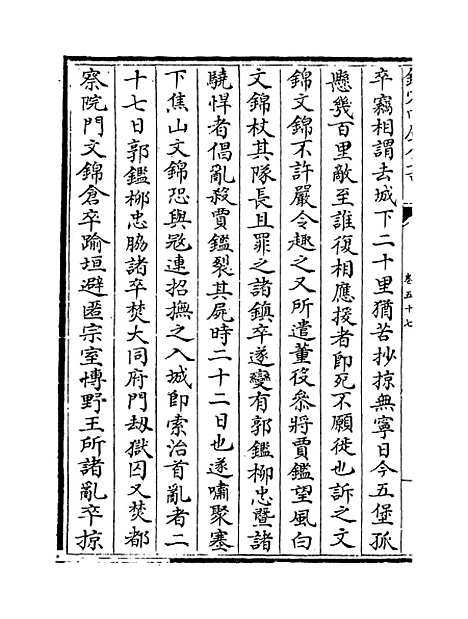 欽定四庫全書
卷五十七
卒竊相謂去城下二十里猶苦抄掠無寧日今五堡孤
懸幾百里敵至誰復相應援者即死不願徙也訴之文
錦文錦不許嚴令趣之又所遣董役叅將賈鑑望風白
文錦杖其隊長且罪之諸鎮卒遂變有郭鑑柳忠暨諸
驍悍者倡亂殺賈鑑裂其屍時二十二日也遂嘯聚塞
下焦山文錦恐與寇連招撫之入城即索治首亂者二
十七日郭鑑柳忠脇諸卒焚大同府門刼獄囚又焚都
察院門文錦倉卒踰垣避匿宗室博野王所諸亂卒掠